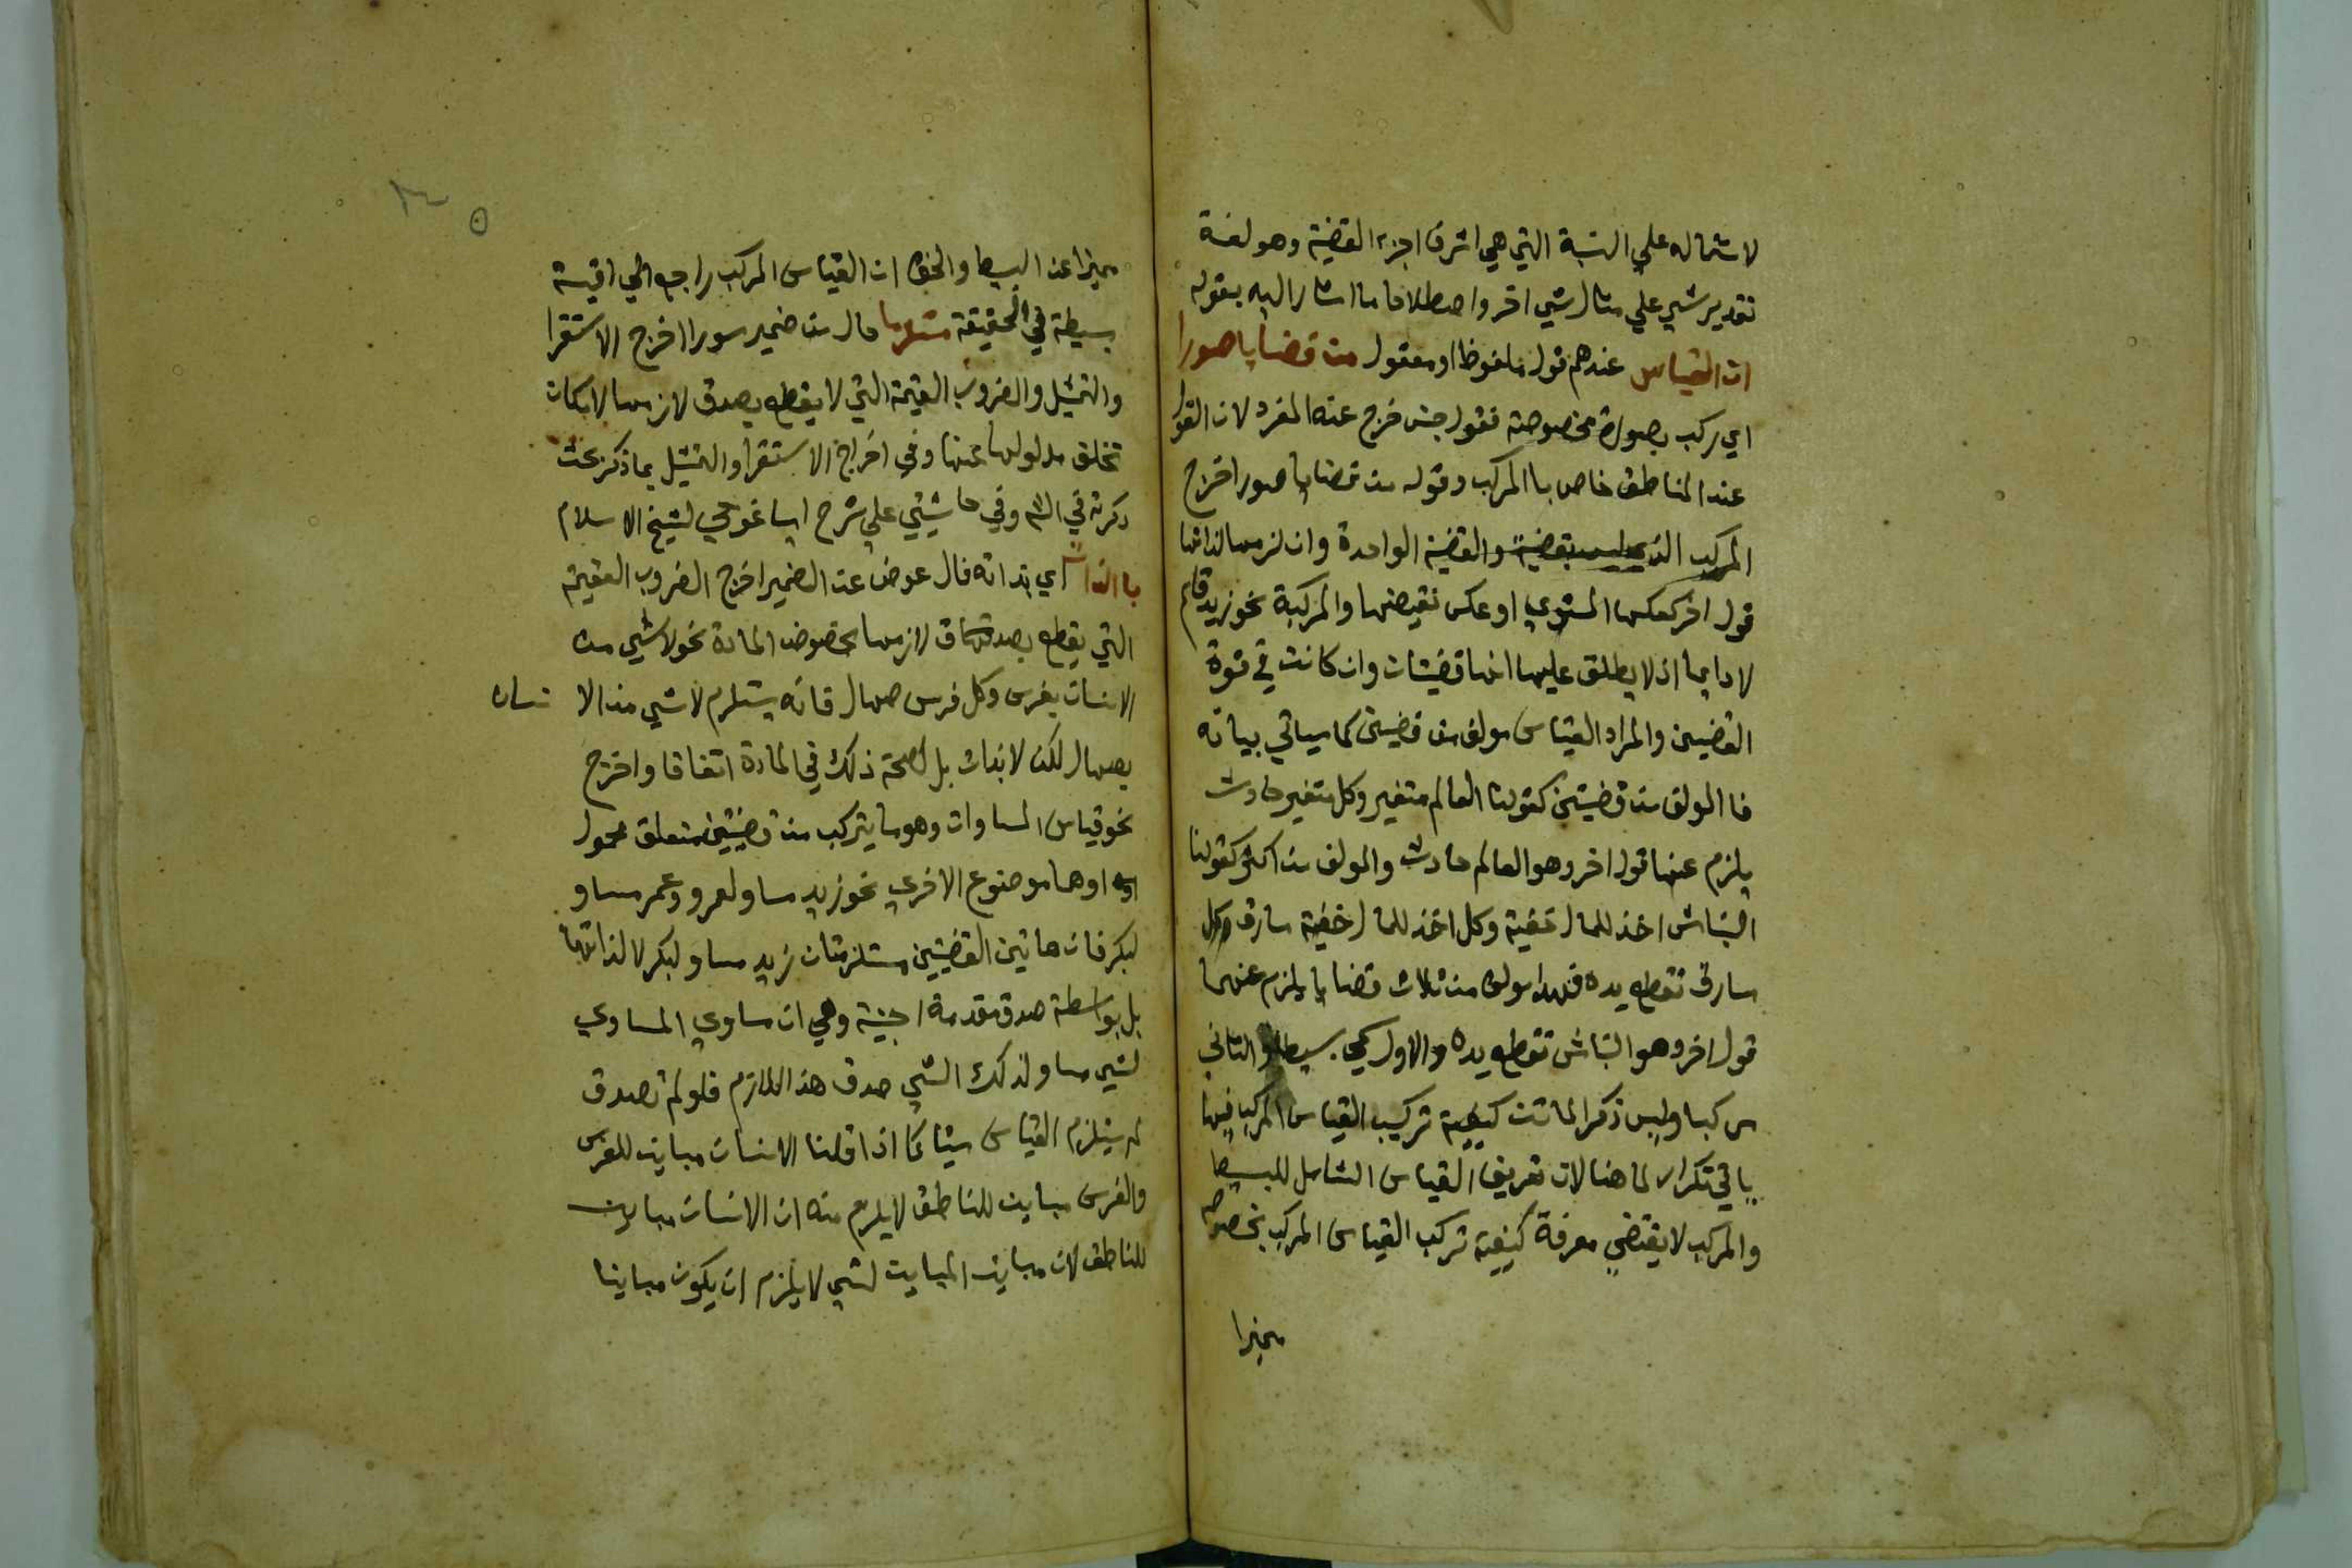 لاشتماله علي النسبة التي هي اشرف اجزء القضية وهو لغة
تقدير شي علي مثال شي اخر واصطلاحا ما اشار اليه بقوله
ان القياس عندهم قول ملفوظ او معقول من قضايا صورا
اي ركب بصورة مخصوصة فقول جنس خرج عنه المفرد لان القول
عند المناطق خاص با المركب وقوله من قضايا صورا خرج
المركب الذي ليس بقضية والقضية الواحدة وان لزمها لذاتها
قول اخر كعكسها المستوي او عكس نقيضها والمركبة نحو زيد قايم
لا دايما اذ لا يطلق عليها انها قضيتان وان كانت في قوة
القضيتين والمراد القياس مولف من قضيتين كما سياتي بيانه
فا المولف من قضيتين كقولنا العالم متغير وكل متغير حادث
يلزم عنها قول اخر وهو العالم حادث والمولف من اكثر كقولنا
النباش اخذ للمال خفية وكل اخذ للمال خفية سارق وكل
سارق تقطع يده فهذا مولف من ثلاث قضايا يلزم عنها
قول اخر وهو النباش تقطع يده والاول يسمى بسيطا والثاني
مركبا وليس ذكر الماتن كيفية تركيب القياس المركب فيما
ياتي تكرار لما هنا لان تعريف القياس الشامل للبسيط
والمركب لا يقتضي معرفة كيفية تركب القياس المركب بخصوصه
مميزا
مميزا عن البسيط والحق ان القياس المركب راجع الي اقيسة
بسيطة في الحقيقة مستلزما حال من ضمير صورا اخرج الاستقرا
والتمثيل والضروب العقيمة التي لا يقطع بصدق لازمها لامكان
تخلف مدلولها عنها وفي اخراج الاستقرا والتمثيل بما ذكر بحث
ذكرته في الشرح وفي حاشيتي علي شرح ايساغوجي لشيخ الاسلام
با الذات اي بذاته فال عوض عن الضمير اخرج الضروب العقيمة
التي يقطع بصدق لازمها بخصوص المادة نحو لا شي من
الانسان بفرس وكل فرس صهال فانه يستلزم لا شي من الا نسان
بصهال لكن لا بذات بل لصحة ذلك في المادة اتفاقا واخرج
نحو قياس المساوات وهو ما يتركب من قضيتين متعلق محمول
اولاهما موضوع الاخري نحو زيد مساو لعمرو وعمر مساو
لبكر فان هاتين القضيتين مستلزمتان زيد مساو لبكر لا لذاتهما
بل بواسطة صدق مقدمة اجنبية وهي ان مساوي المساوي
لشي مساو لذلك الشي صدق هذا اللازم فلو لم تصدق
لم يستلزم القياس شيئا كما اذا قلنا الانسان مباين للفرس
والفرس مباين للناطق لا يلزم منه ان الانسان مباين
للناطق لان مباين المباين لشي لا يلزم ان يكون مباينا